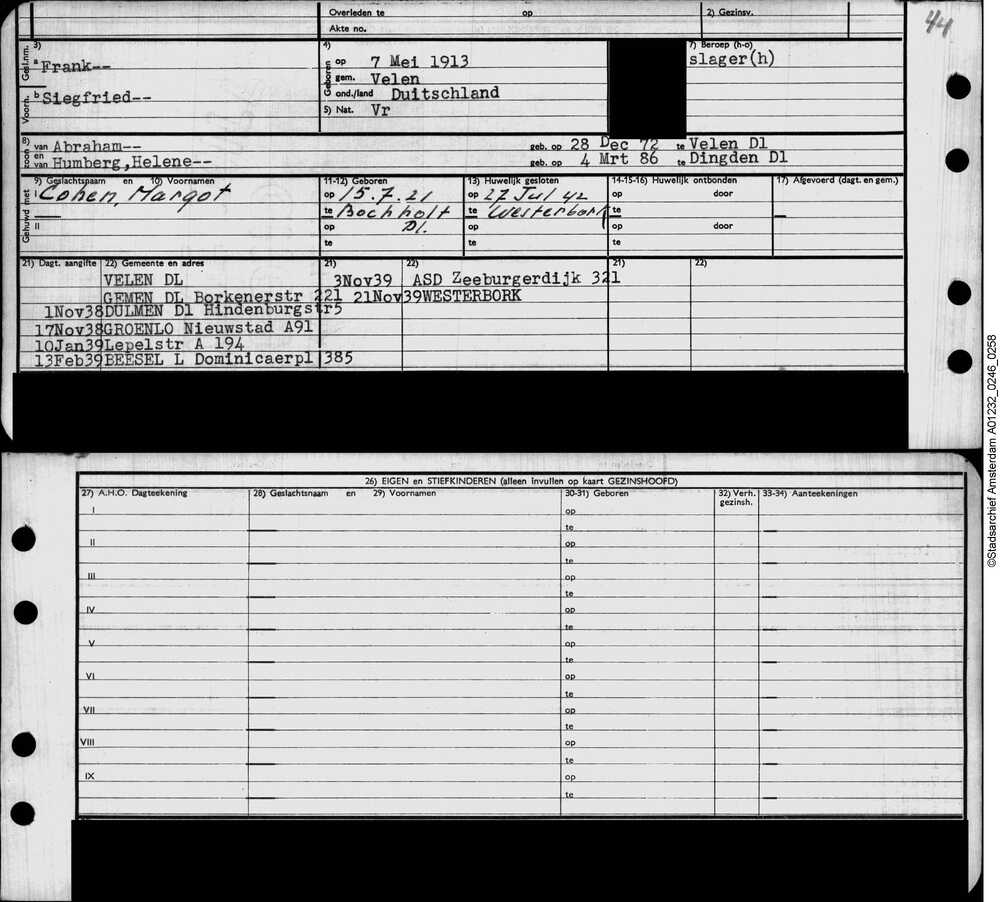 Overleden te op 2) Gezinsv.
Akte no.
44
3) 4) 7) Beroep (h-o)
Gesl.nm. a Frank-- Geboren op 7 Mei 1913 slager(h)
gem. Velen
Voorn. b Siegfried-- ond./land Duitschland
5) Nat. Vr
8) zoon van Abraham-- geb. op 28 Dec 72 te Velen Dl
en van Humberg,Helene-- geb. op 4 Mrt 86 te Dingden Dl
9) Geslachtsnaam en 10) Voornamen 11-12) Geboren 13) Huwelijk gesloten 14-15-16) Huwelijk ontbonden 17) Afgevoerd (dagt. en gem.)
Gehuwd met I Cohen, Margot op 15.7.21 op 27 Jul 42 op door
te Bochholt te Westerbork te
II op Dl. op op door
te te te
21) Dagt. aangifte 22) Gemeente en adres 21) 22) 21) 22)
VELEN DL 3Nov39 ASD Zeeburgerdijk 321
GEMEN DL Borkenerstr 221 21Nov39WESTERBORK
1Nov38DULMEN Dl Hindenburgstr5
17Nov38GROENLO Nieuwstad A91
10Jan39Lepelstr A 194
13Feb39BEESEL L Dominicaerpl 385
26) EIGEN en STIEFKINDEREN (alleen invullen op kaart GEZINSHOOFD)
27) A.H.O. Dagteekening 28) Geslachtsnaam en 29) Voornamen 30-31) Geboren 32) Verh. gezinsh. 33-34) Aanteekeningen
I op
te
II op
te
III op
te
IV op
te
V op
te
VI op
te
VII op
te
VIII op
te
IX op
te
©Stadsarchief Amsterdam A01232_0246_0258